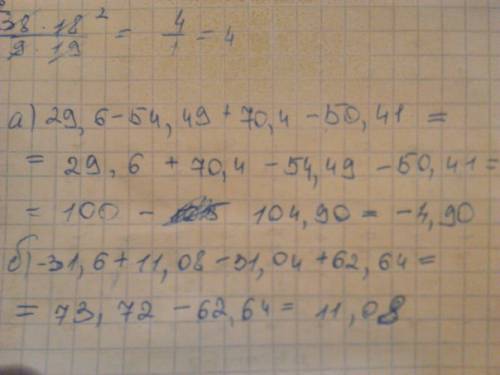 38 · 18 ² / 9 · 19 = 4/1 = 4
а) 29,6-54,49+70,4-50,41 =
= 29,6 + 70,4 - 54,49 - 50,41 =
= 100 - 104,90 = -4,90
б) -31,6+11,08-31,04+62,64=
= 73,72 - 62,64 = 11,08